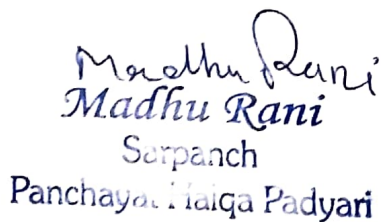 Madhu Rani
Madhu Rani
Sarpanch
Panchayat Halqa Padyari